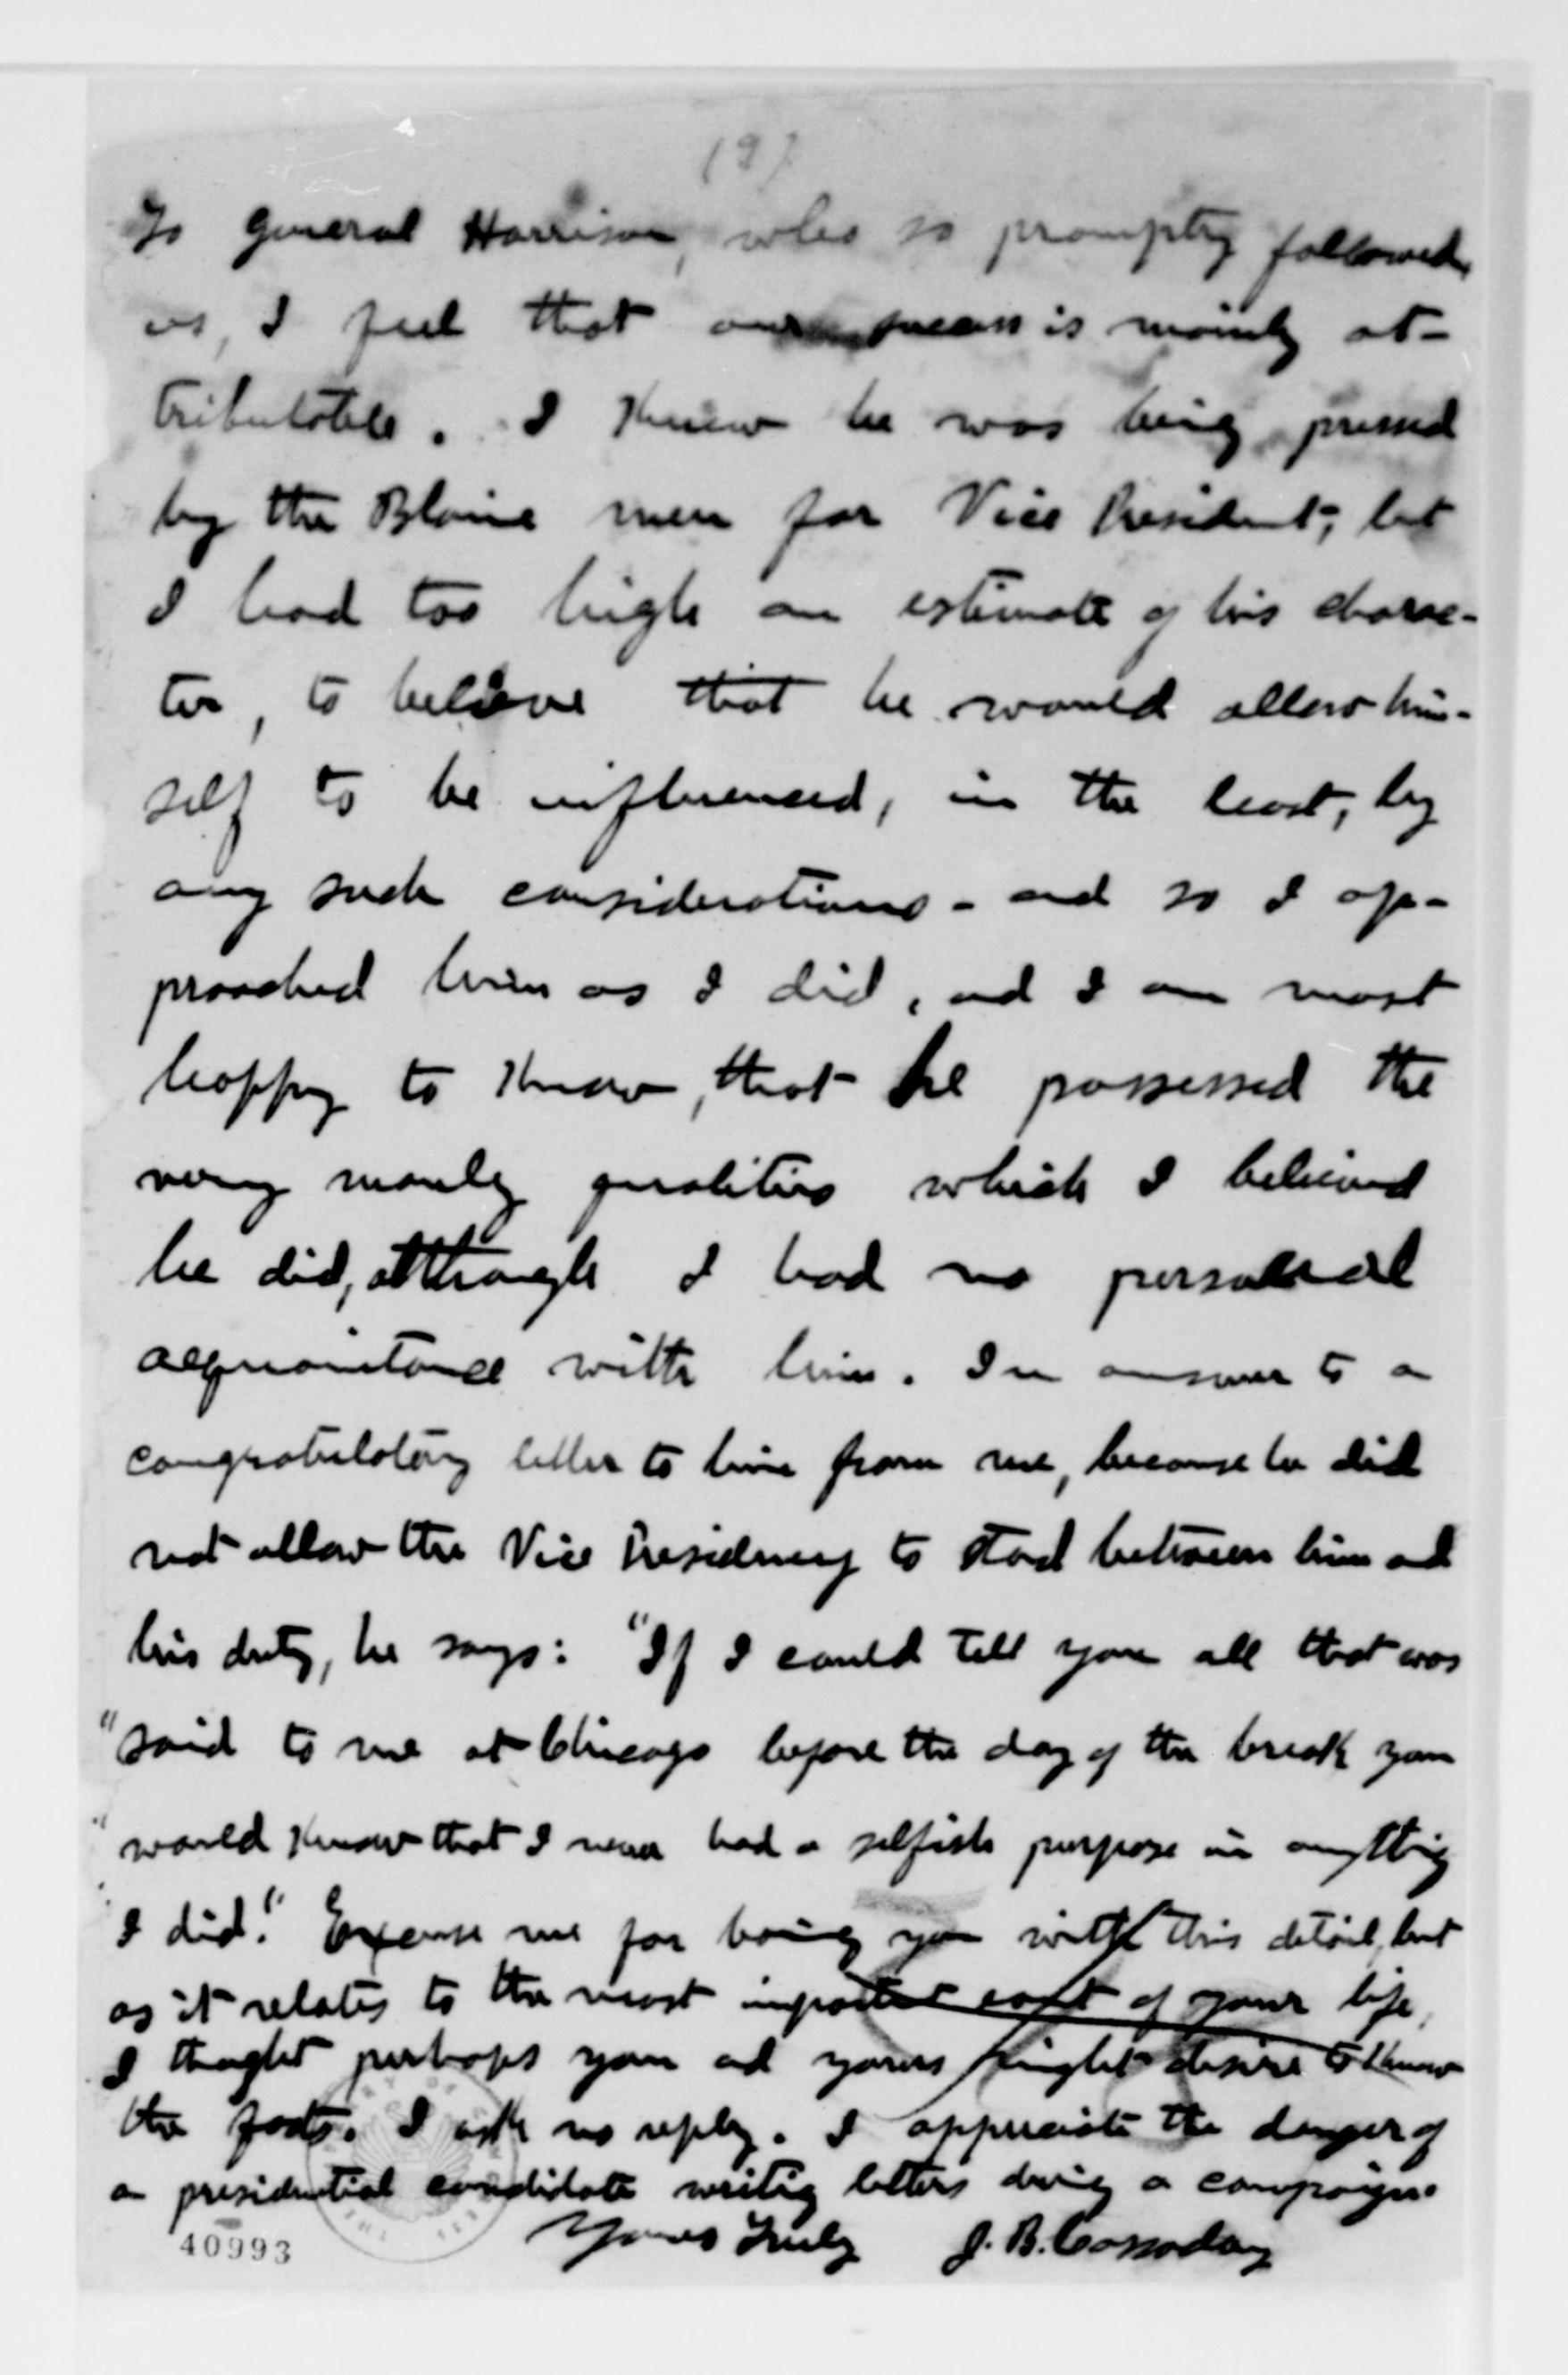 (9)
To General Harrison, who so promptly followed
us, I feel that our success is mainly at-
tributable. I knew he was being pressed
by the Blaine men for Vice President; but
I had too high an estimate of his charac-
ter, to believe that he would allow him-
self to be influenced, in the least, by
any such considerations - and so I ap-
proached him as I did, and I am most
happy to know, that he possessed the
very manly qualities which I believed
he did, although I had no personal
acquaintance with him. In answer to a
congratulatory letter to him from me, because he did
not allow the Vice Presidency to stand between him and
his duty, he says: "If I could tell you all that was
"said to me at Chicago before the day of the break you
"would know that I never had a selfish purpose in anything
"I did." Excuse me for boring you with this detail, but
as it relates to the most important of your life,
I thought perhaps you and yours might desire to know
the facts. I ask no reply. I appreciate the danger of
a presidential candidate writing letters during a campaign.
Yours Truly J. B. Cassoday
40993